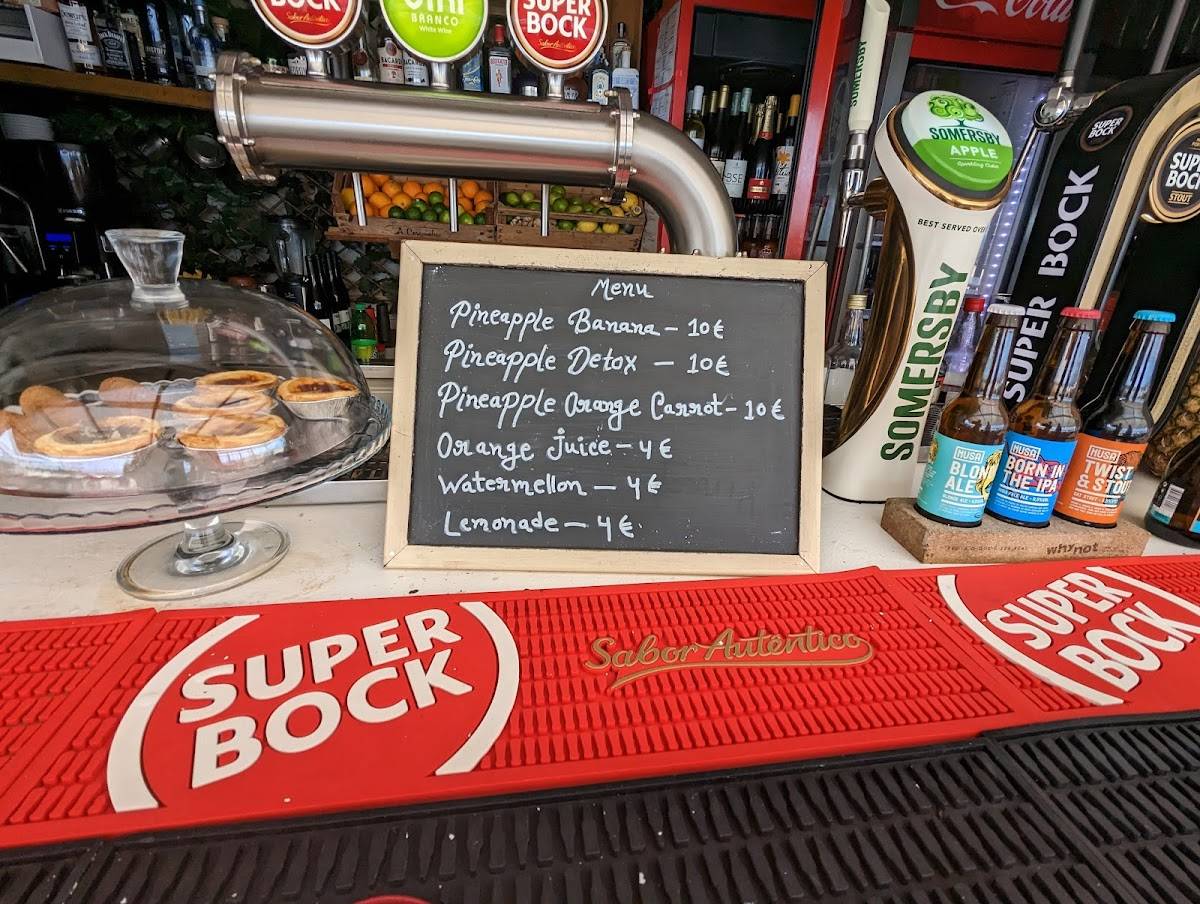 BOCK
Sabor Autêntico
BRANCO
White Wine
SUPER
BOCK
Sabor Autêntico
Coca
SOMERSBY
SOMERSBY
APPLE
Sparkling Cider
BEST SERVED OVER
SOMERSBY
SUPER
BOCK
SUPER BOCK
SUPER
BOCK
STOUT
Menu
Pineapple Banana – 10€
Pineapple Detox – 10€
Pineapple Orange Carrot – 10€
Orange Juice – 4€
Watermellon – 4€
Lemonade – 4€
MUSA
BLOND
ALE
MUSA
BORN IN
THE IPA
MUSA
TWIST
& STOUT
whynot
SUPER
BOCK
Sabor Autêntico
SUPER
BOCK